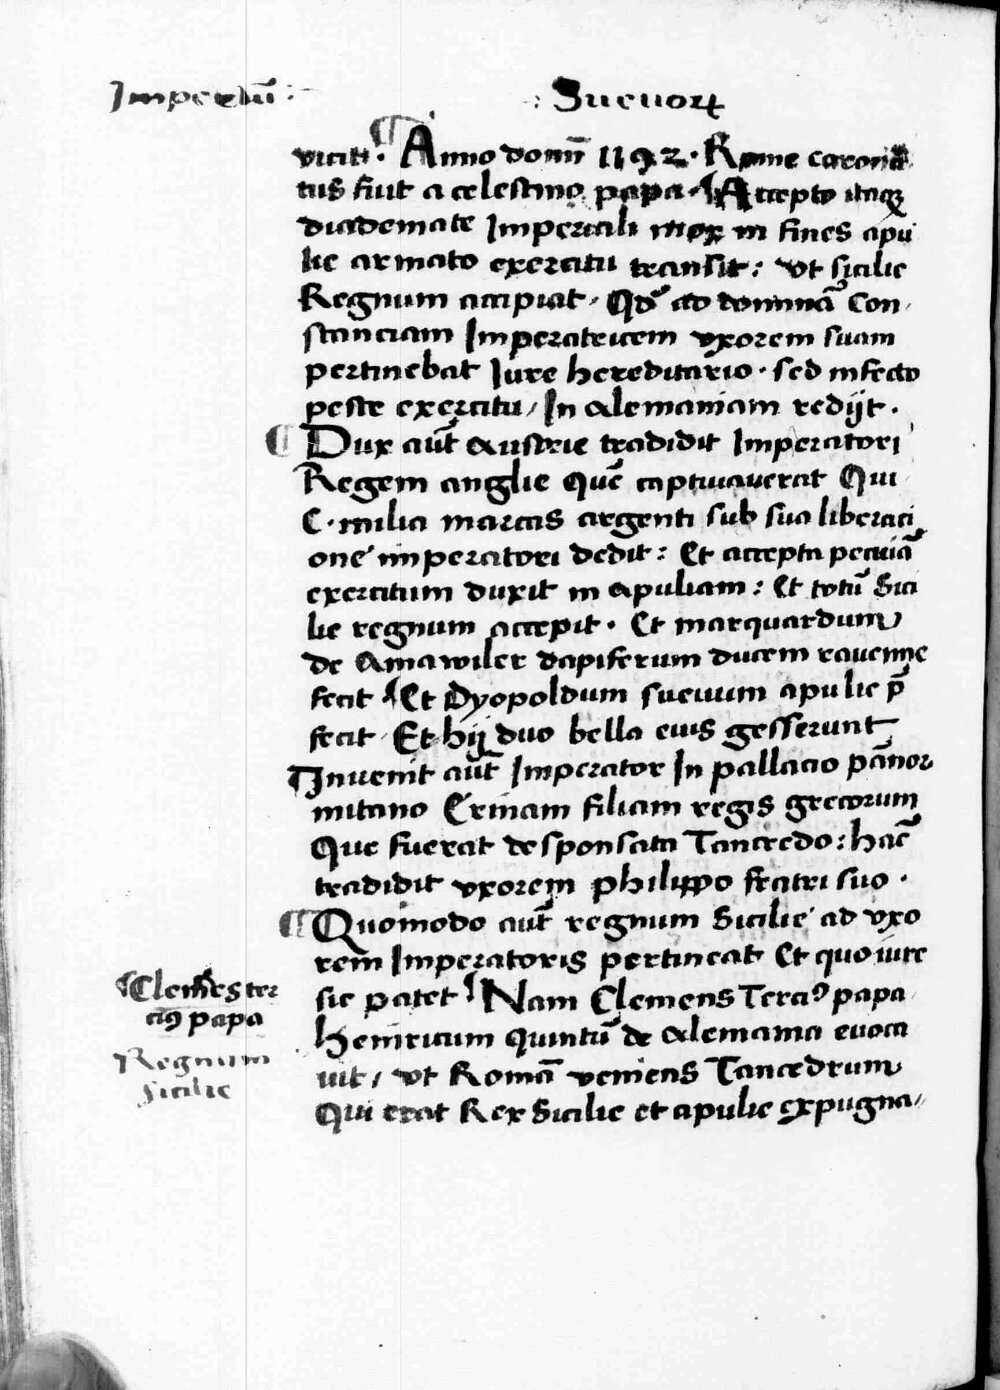 Imperiū : : Sueuoꝝ
vicit. ¶ Anno domī 1192. Rome corona
tus fuit a celestino papa. ¶ Accepto itaqꝫ
diademate Imperiali mox in fines apu
lie armato exercitu transit: vt sicilie
Regnum accipiat. Qđ ad dominā Con
stanciam Imperatricem vxorem suam
pertinebat Iure hereditario. sed infecto
peste exercitu, In Alemaniam redijt.
¶ Dux aut̄ Austrie tradidit Imperatori
Regem anglie Quē captiuauerat Qui
C. milia marcas argenti sub sua liberaci
one imperatori dedit: Et accepta pecuiā
exercitum duxit in Apuliam: Et totū Sici
lie regnum accepit. Et marquardum
de Amawiler dapiferum ducem rauenne
fecit ¶ Et Dyopoldum sueuum apulie p̄
fecit. Et hij duo bella eius gesserunt
¶ Inuenit aut̄ Imperator In pallacio pānor
mitano Erinam filiam regis grecorum
Que fuerat desponsata Tancredo: hāc
tradidit vxorem philippo fratri suo.
¶ Quomodo aut̄ regnum Sicilie ad vxo
rem Imperatoris pertineat Et quo iure
sic patet ¶ Nam Clemens Terciꝰ papa
Henricum Quintū de Alemania euoca
uit, vt Romā veniens Tancedrum
Qui erat Rex Sicilie et apulie expugna
¶ Clemēs ter
ciꝰ papa
Regnum
Sicilie